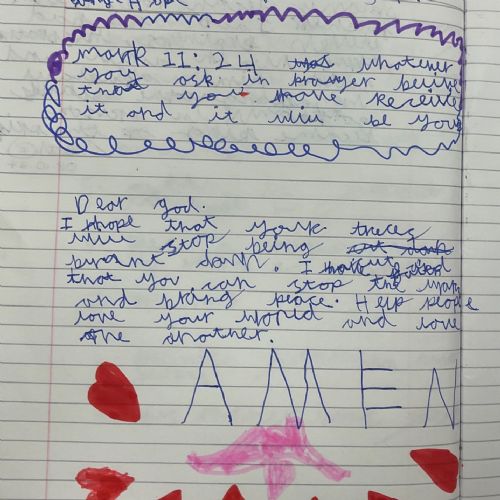 mark 11:24 whatever
you ask in prayer belive
that you have Receive
it and it will be yours
Dear god.
I hope that your treees
will stop being cut down
burnt down. I have
that you can stop the
and bring peace. Help people
love your world and love
one another.
AMEN